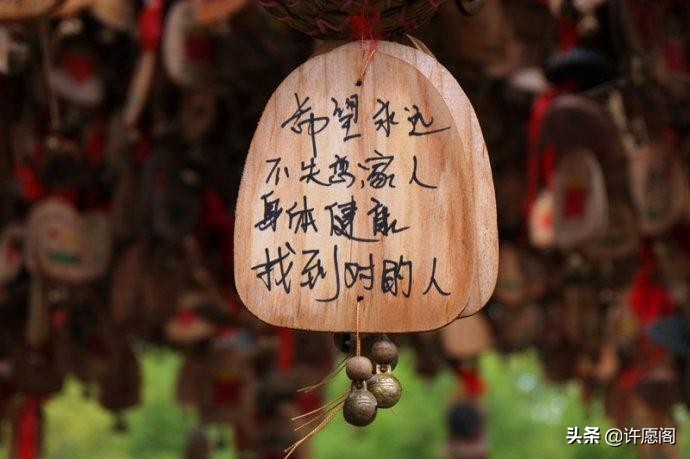 希望永远
不失恋,家人
身体健康
找到对的人
头条 @许愿阁